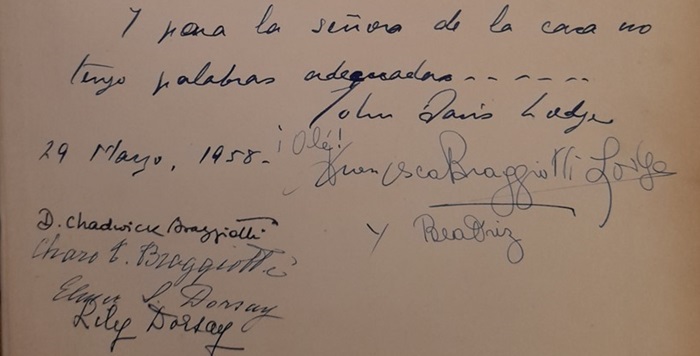 Y para la señora de la casa no
tengo palabras adecuadas - - - - - -
John Davis Lodge
29 Marzo, 1958.-
¡Olé!
Francesca Braggiotti Lodge
Y Beatriz
D. Chadwick Braggiotti
Charo C. Braggiotti
Elmer S. Dorsay
Lily Dorsay